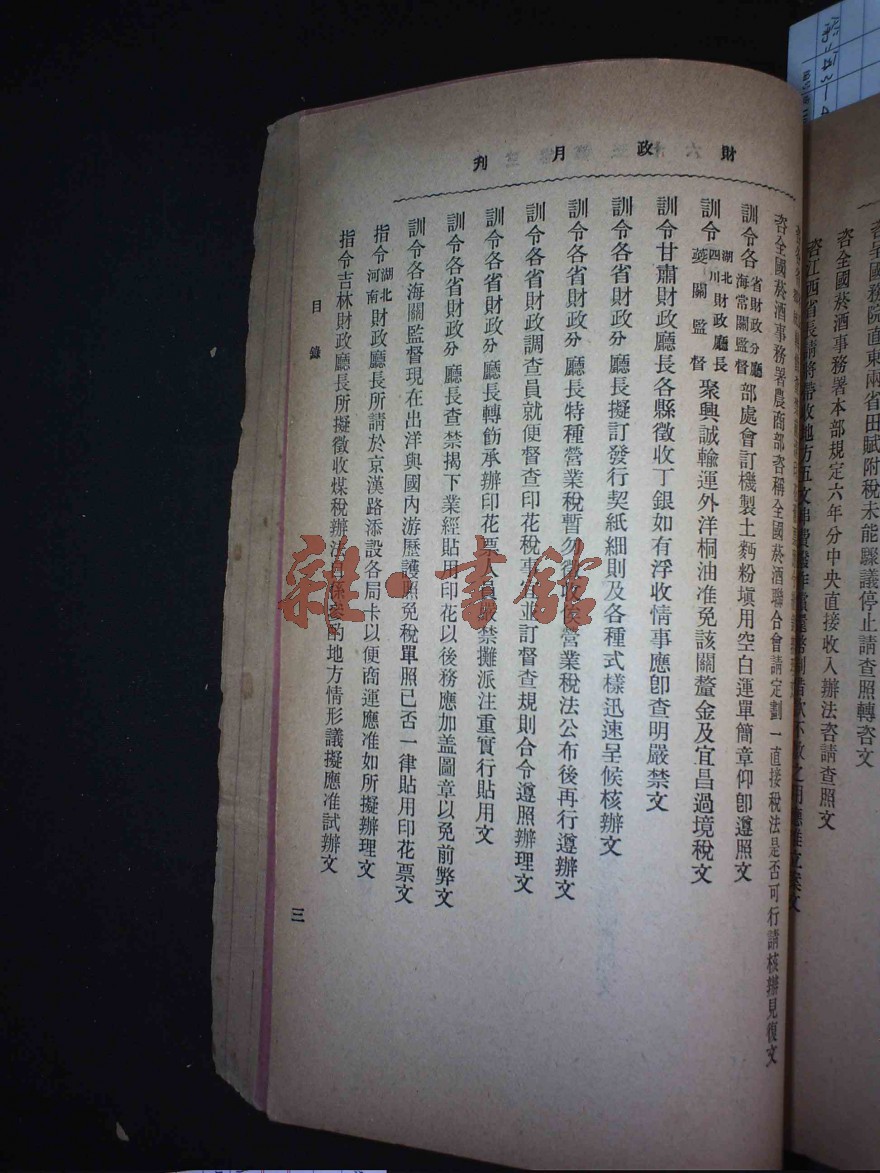 咨呈國務院直東兩省田賦附稅未能驟議停止請查照轉咨文
咨全國菸酒事務署本部規定六年分中央直接收入辦法咨請查照文
咨江西省長請將帶收地方五文串費撥作
財政月刊
咨全國菸酒事務署農商部咨稱全國菸酒聯合會請定劃一直接稅法是否可行請核辦見復文
訓令各省財政分廳海常關監督部處會訂機製土麪粉塡用空白運單簡章仰卽遵照文
訓令湖北四川財政廳長夔關監督聚興誠輸運外洋桐油准免該關釐金及宜昌過境稅文
訓令甘肅財政廳長各縣徵收丁銀如有浮收情事應卽查明嚴禁文
訓令各省財政分廳長擬訂發行契紙細則及各種式樣迅速呈候核辦文
訓令各省財政分廳長特種營業稅暫勿徵收俟營業稅法公布後再行遵辦文
訓令各省財政調查員就便督查印花稅事宜並訂督查規則合令遵照辦理文
訓令各省財政分廳長轉飭承辦印花票人員嚴禁攤派注重實行貼用文
訓令各省財政分廳長查禁揭下業經貼用印花以後務應加盖圖章以免前弊文
訓令各海關監督現在出洋與國內游歷護照免稅單照已否一律貼用印花票文
指令湖北河南財政廳長所請於京漢路添設各局卡以便商運應准如所擬辦理文
指令吉林財政廳長所擬徵收煤稅辦法旣係參酌地方情形議擬應准試辦文
目錄
三
雜·書館